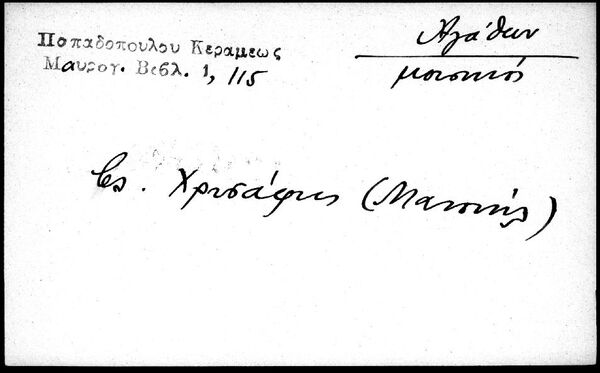 Παπαδοπουλου Κεραμεως
Μαυρογ. Βιβλ. 1, 115
Ἀγάθων
μουσικός
Χρυσάφης (Μανουήλ)